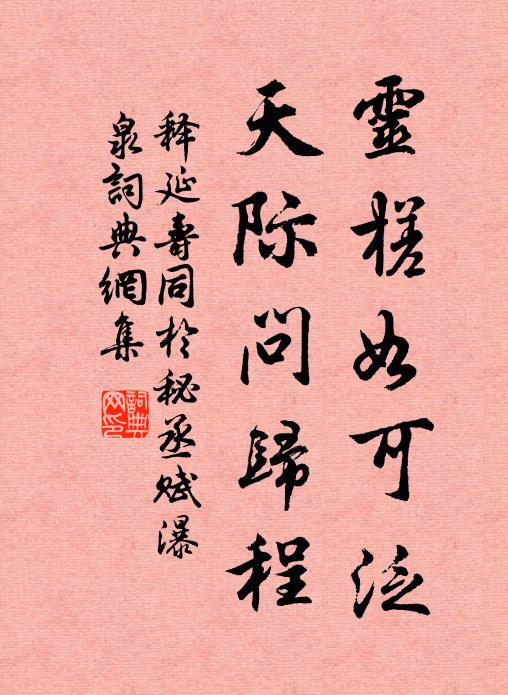 靈槎如可泛
天际問歸程
释延壽同於秘丞賦瀑
泉詞典網集
詞典
网印